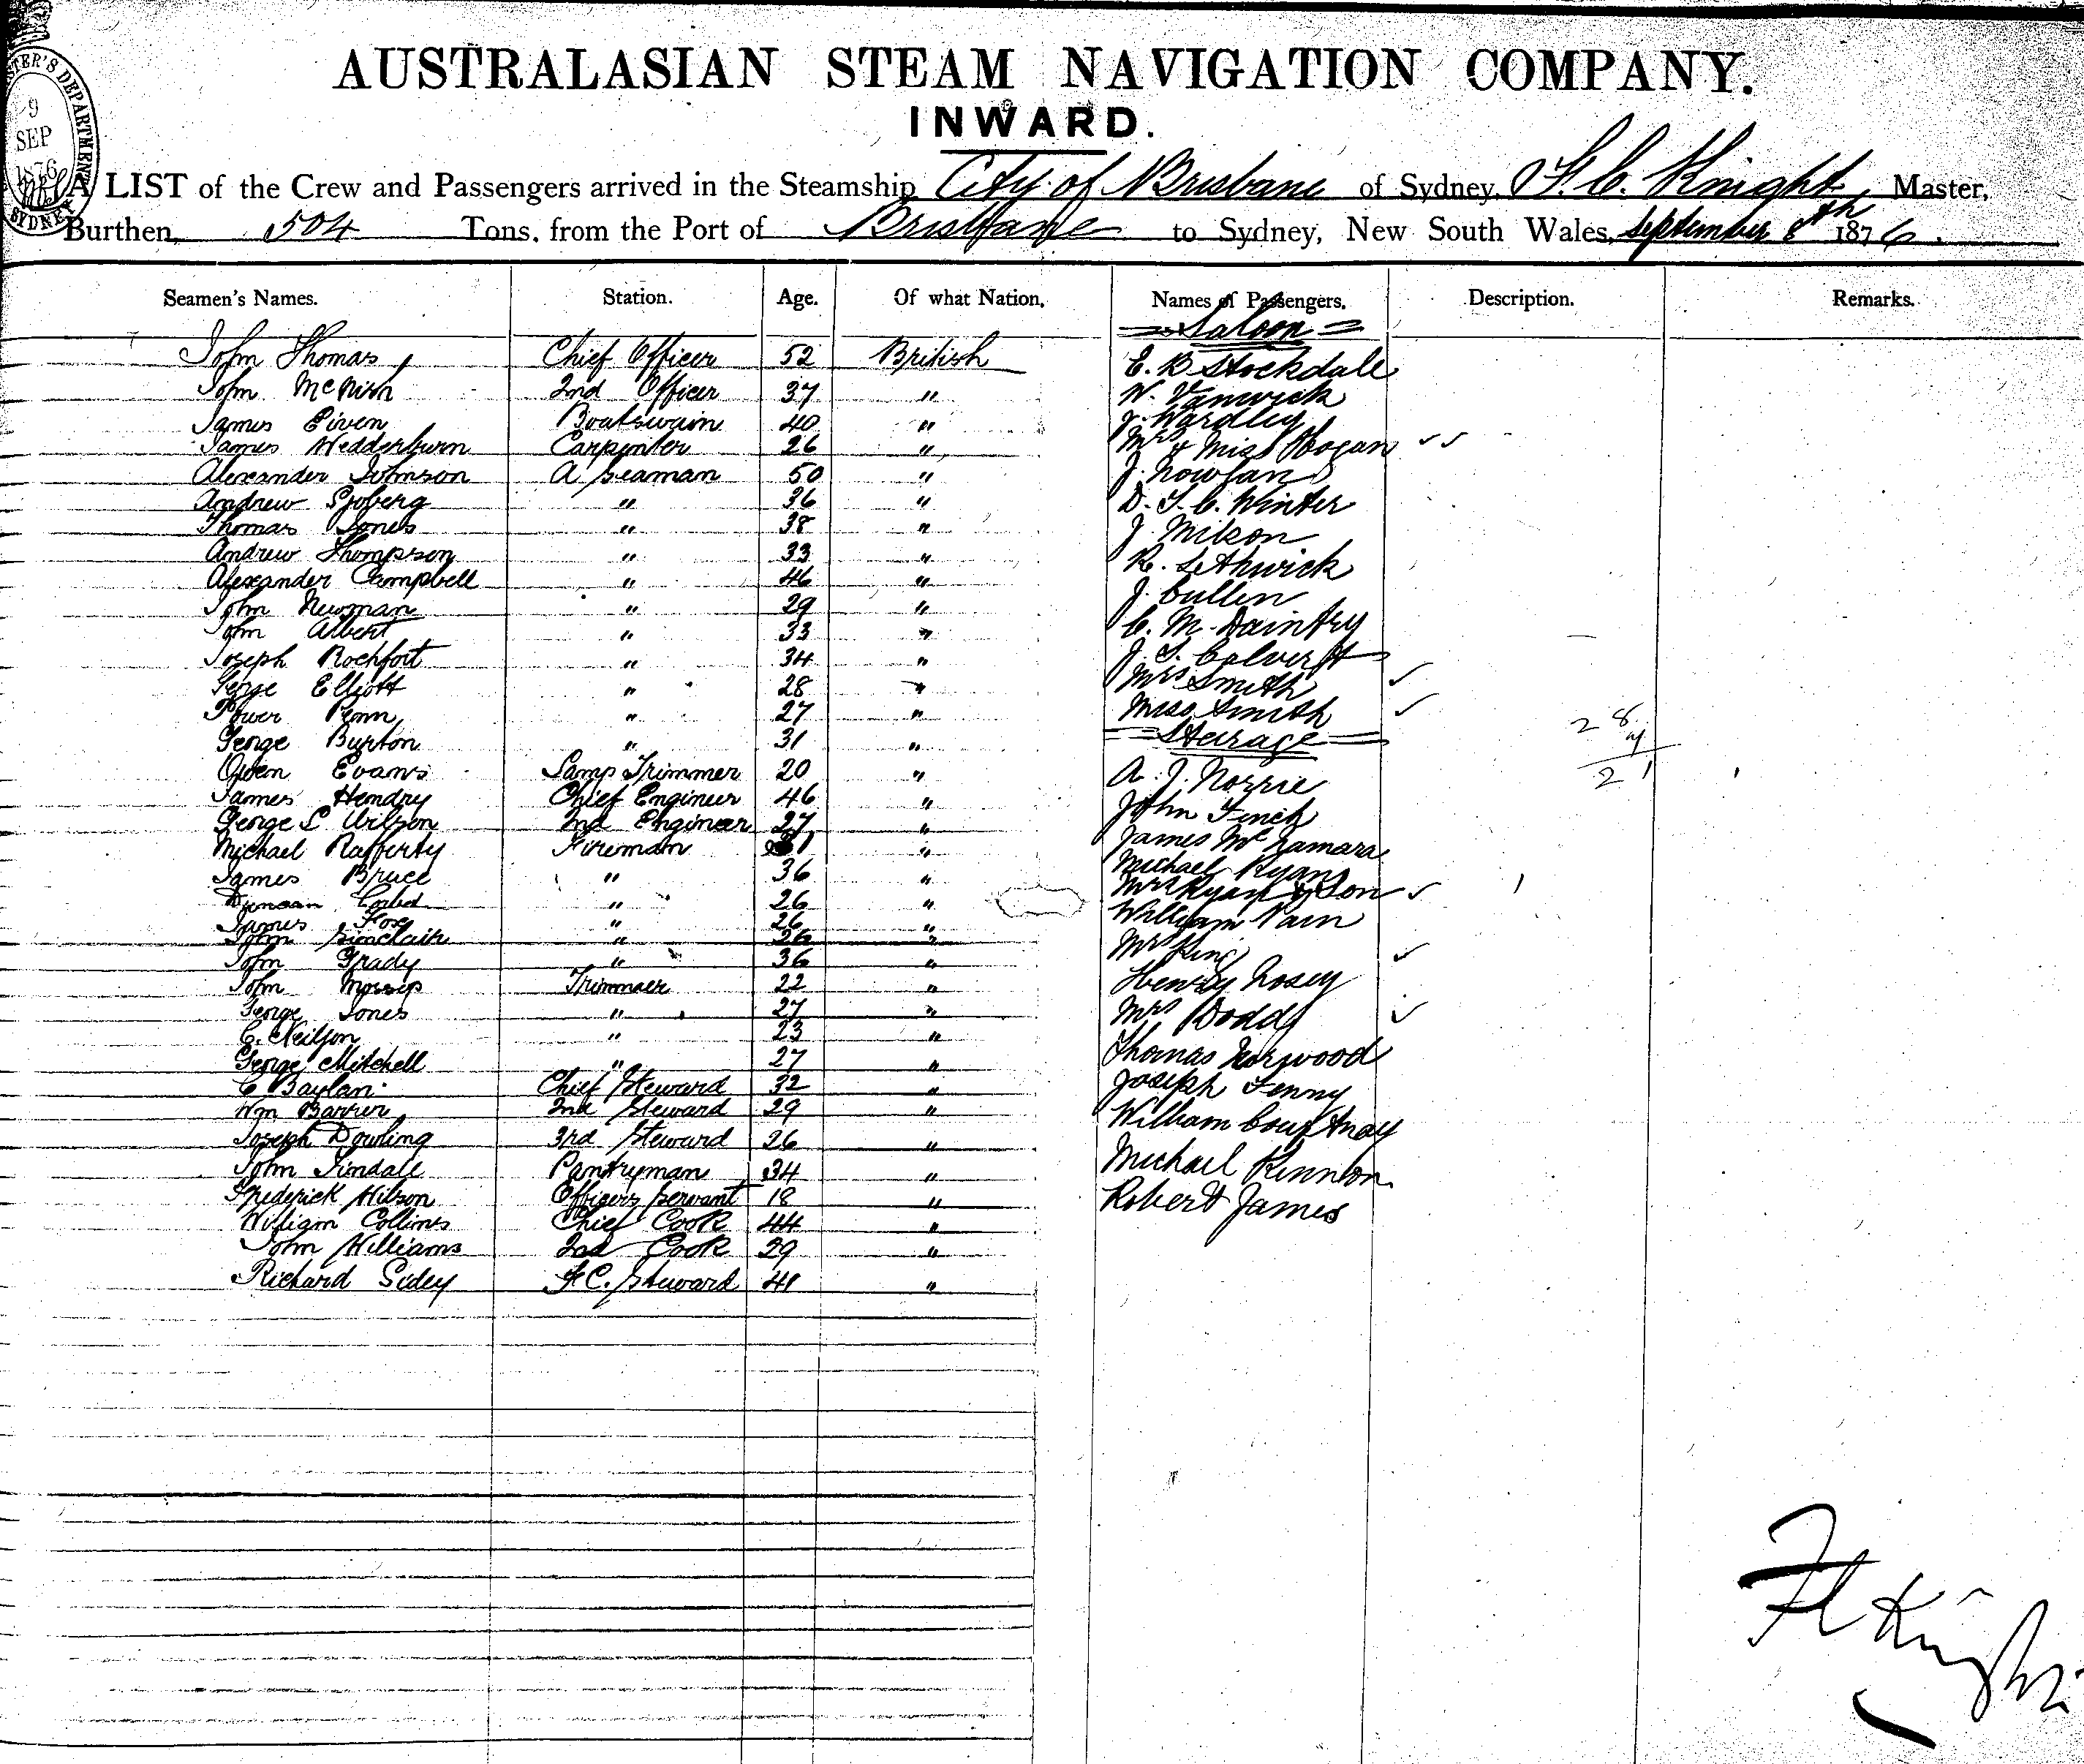 AUSTRALASIAN STEAM NAVIGATION COMPANY.
INWARD.
9
SEP
1876
SYDNEY
A LIST of the Crew and Passengers arrived in the Steamship City of Brisbane of Sydney, F. C. Knight, Master,
Burthen, 504 Tons, from the Port of Brisbane to Sydney, New South Wales, September 8th 1876.
Seamen's Names. Station. Age. Of what Nation. Names of Passengers. Description. Remarks.
Saloon
John Thomas Chief Officer 52 British E. B Stockdale
John McNish 2nd Officer 37 " W. Vanwick
James Given Boatswain 40 " J. Wardley
James Wedderburn Carpenter 26 " Mrs & Miss Hogan
Alexander Johnson A Seaman 50 " J. Nowlan
Andrew Sjoberg " 36 " D. T. C. Winter
Thomas Jones " 38 " J. Milson
Andrew Thompson " 33 " R. Lethwick
Alexander Campbell " 46 " J. Cullen
John Newman " 29 " C. M. Daintry
John Albert " 33 " J. S. Calvert
Joseph Rochfort " 34 " Mrs Smith
George Elliott " 28 " Miss Smith
Power Penn " 27 " Steerage
George Burton " 31 "
Owen Evans Lamp Trimmer 20 " A. J. Norrie
James Hendry Chief Engineer 46 " John Finch
George L Wilson 2nd Engineer 27 " James McNamara
Michael Rafferty Fireman 31 " Michael Ryan
James Bruce " 36 " Mrs Ryan & Son
Duncan " 26 " William
James Fox " 26 "
John Sinclair " 26 " Mrs King
John Grady " 36 " Henry Nosey
John Mossip Trimmer 22 " Mrs Dodd
George Jones " 27 " Thomas Norwood
C. Neilson " 23 " Joseph Fenny
George Mitchell " 27 " William Courtnay
C Baylan Chief Steward 32 " Michael Kennion
Wm Barrier 2nd Steward 29 " Robert James
Joseph Dowling 3rd Steward 26 "
John Tindale Pantryman 34 "
Frederick Wilson Officers Servant 18 "
William Collins Chief Cook 44 "
John Williams 2nd Cook 29 "
Richard Sidey F.C. Steward 41 "
28
21
F C Knight